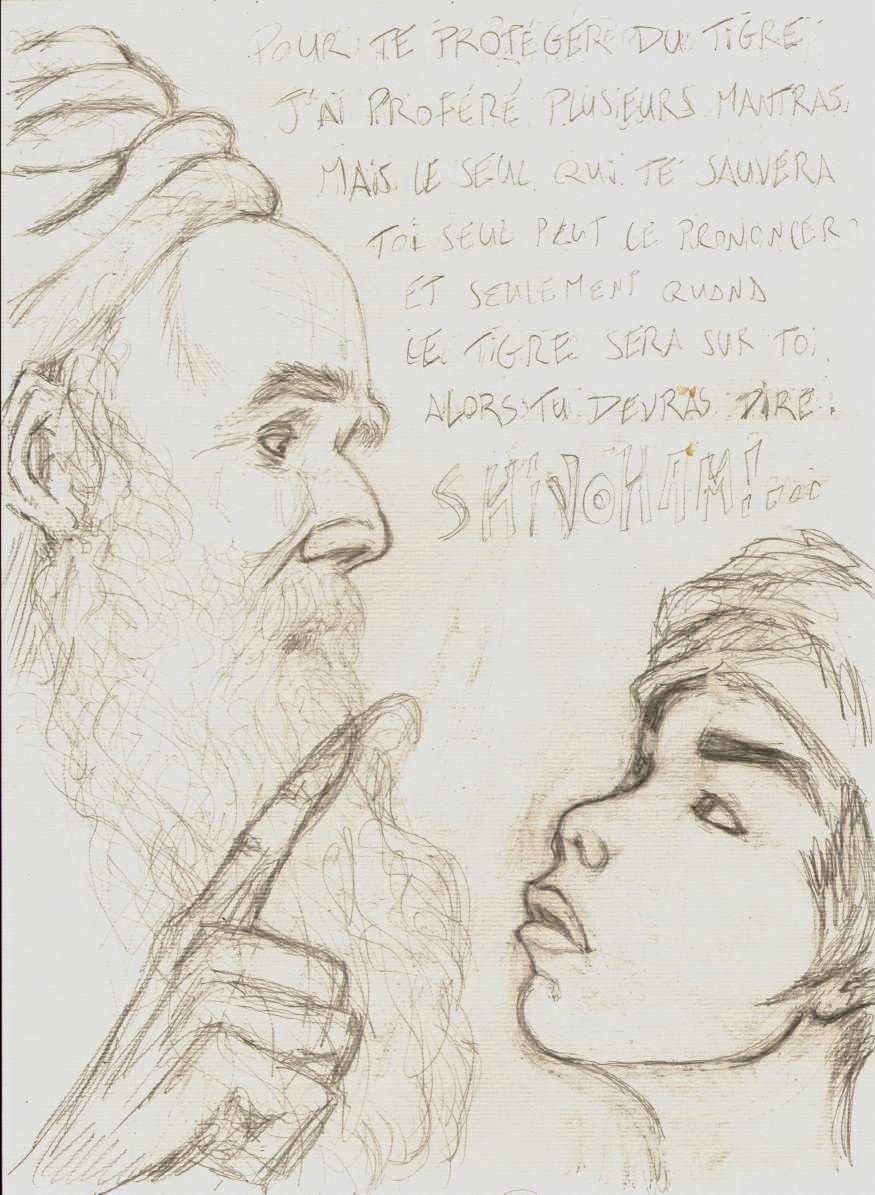 POUR TE PROTÉGÉR DU TIGRE
J'AI PROFÉRÉ PLUSIEURS MANTRAS,
MAIS LE SEUL QUI TE SAUVERA
TOI SEUL PEUT LE PRONONCER
ET SEULEMENT QUAND
LE TIGRE SERA SUR TOI,
ALORS TU DEVRAS DIRE:
SHIVOHAM!...